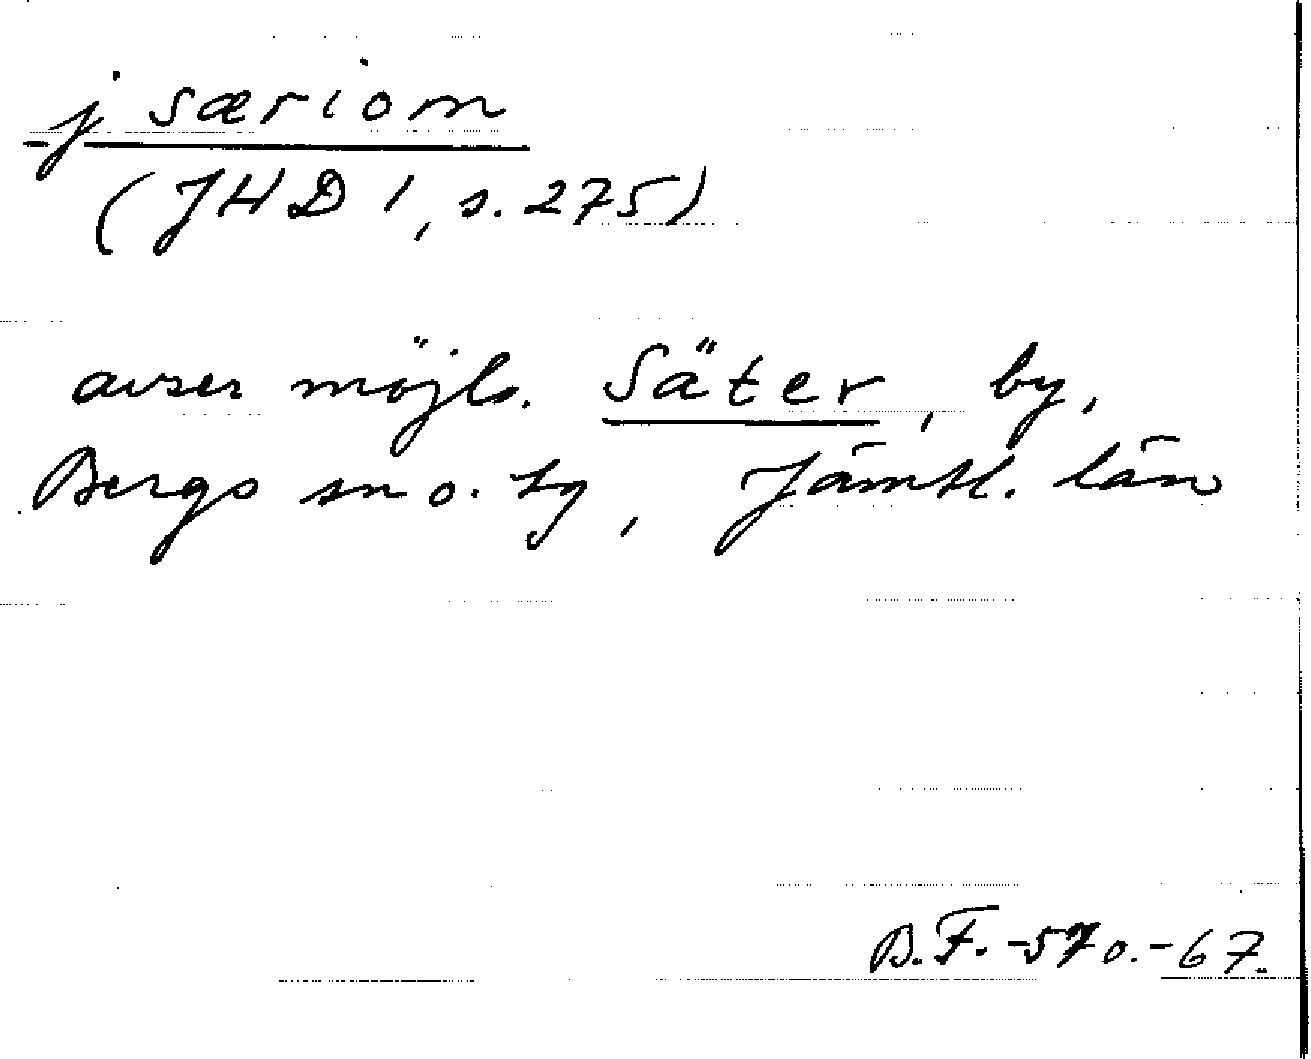 j særiom
(JHD 1, s. 275)
avser möjls. Säter, by,
Bergs sn o. tg, Jämtl. län
B.F. -57 o. -67.